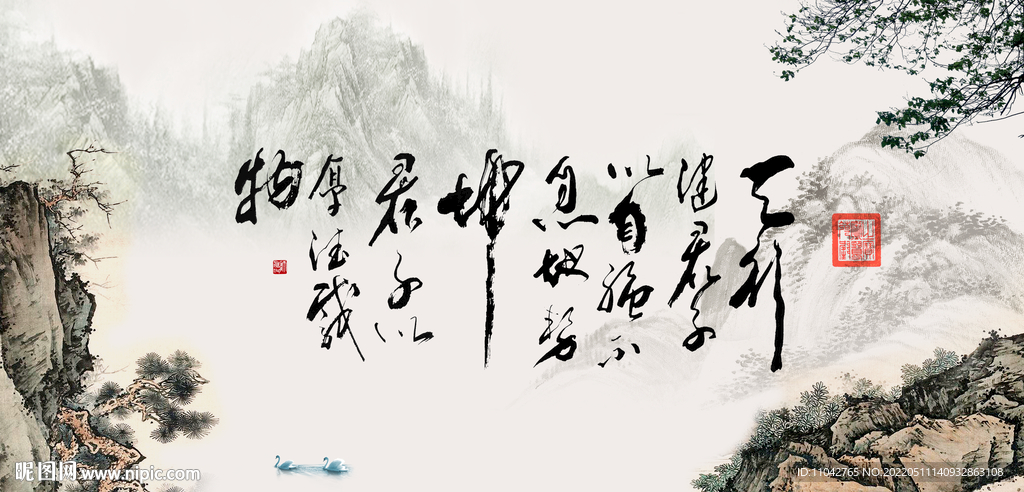 天行
健君子
以自强不
息地势
坤
君子以
厚德载
物
昵图网 www.nipic.com
ID:11042765 NO:20220511140932863108